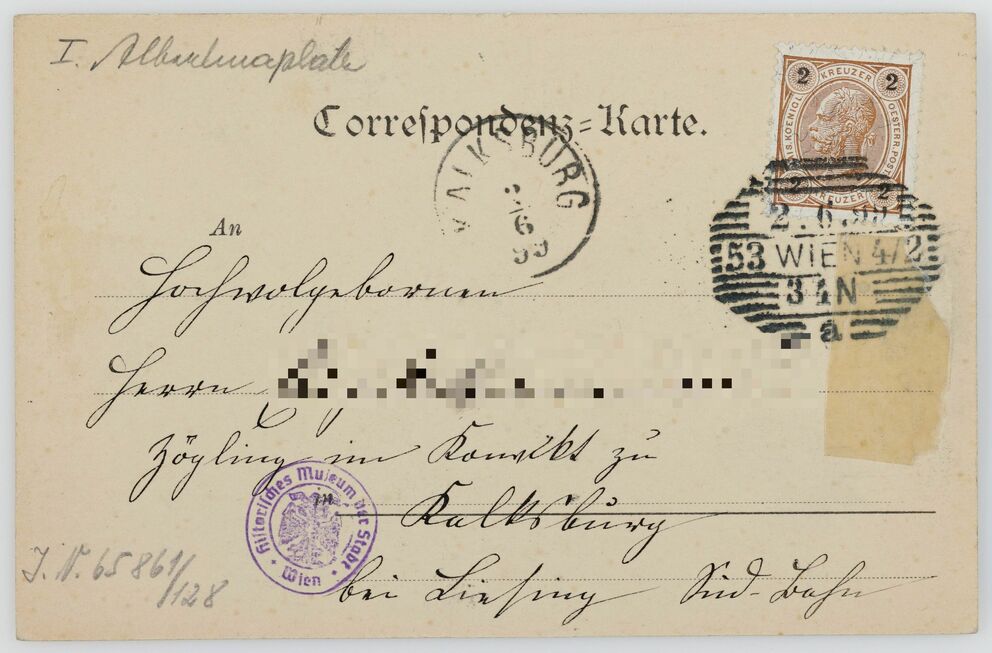 I. Albertinaplatz
Correspondenz=Karte.
2 KREUZER 2
KAIS. KOENIGL. OESTERR. POST
2 KREUZER 2
KALKSBURG
2/6
99
2. 6. 99
53 WIEN 4/2
3 4 N
a
An
Hochwolgebornen
Herrn
Zögling im Konvikt zu
in Kalksburg
bei Liesing Süd-Bahn
Historisches Museum der Stadt
Wien
J. N. 65 861/
/128